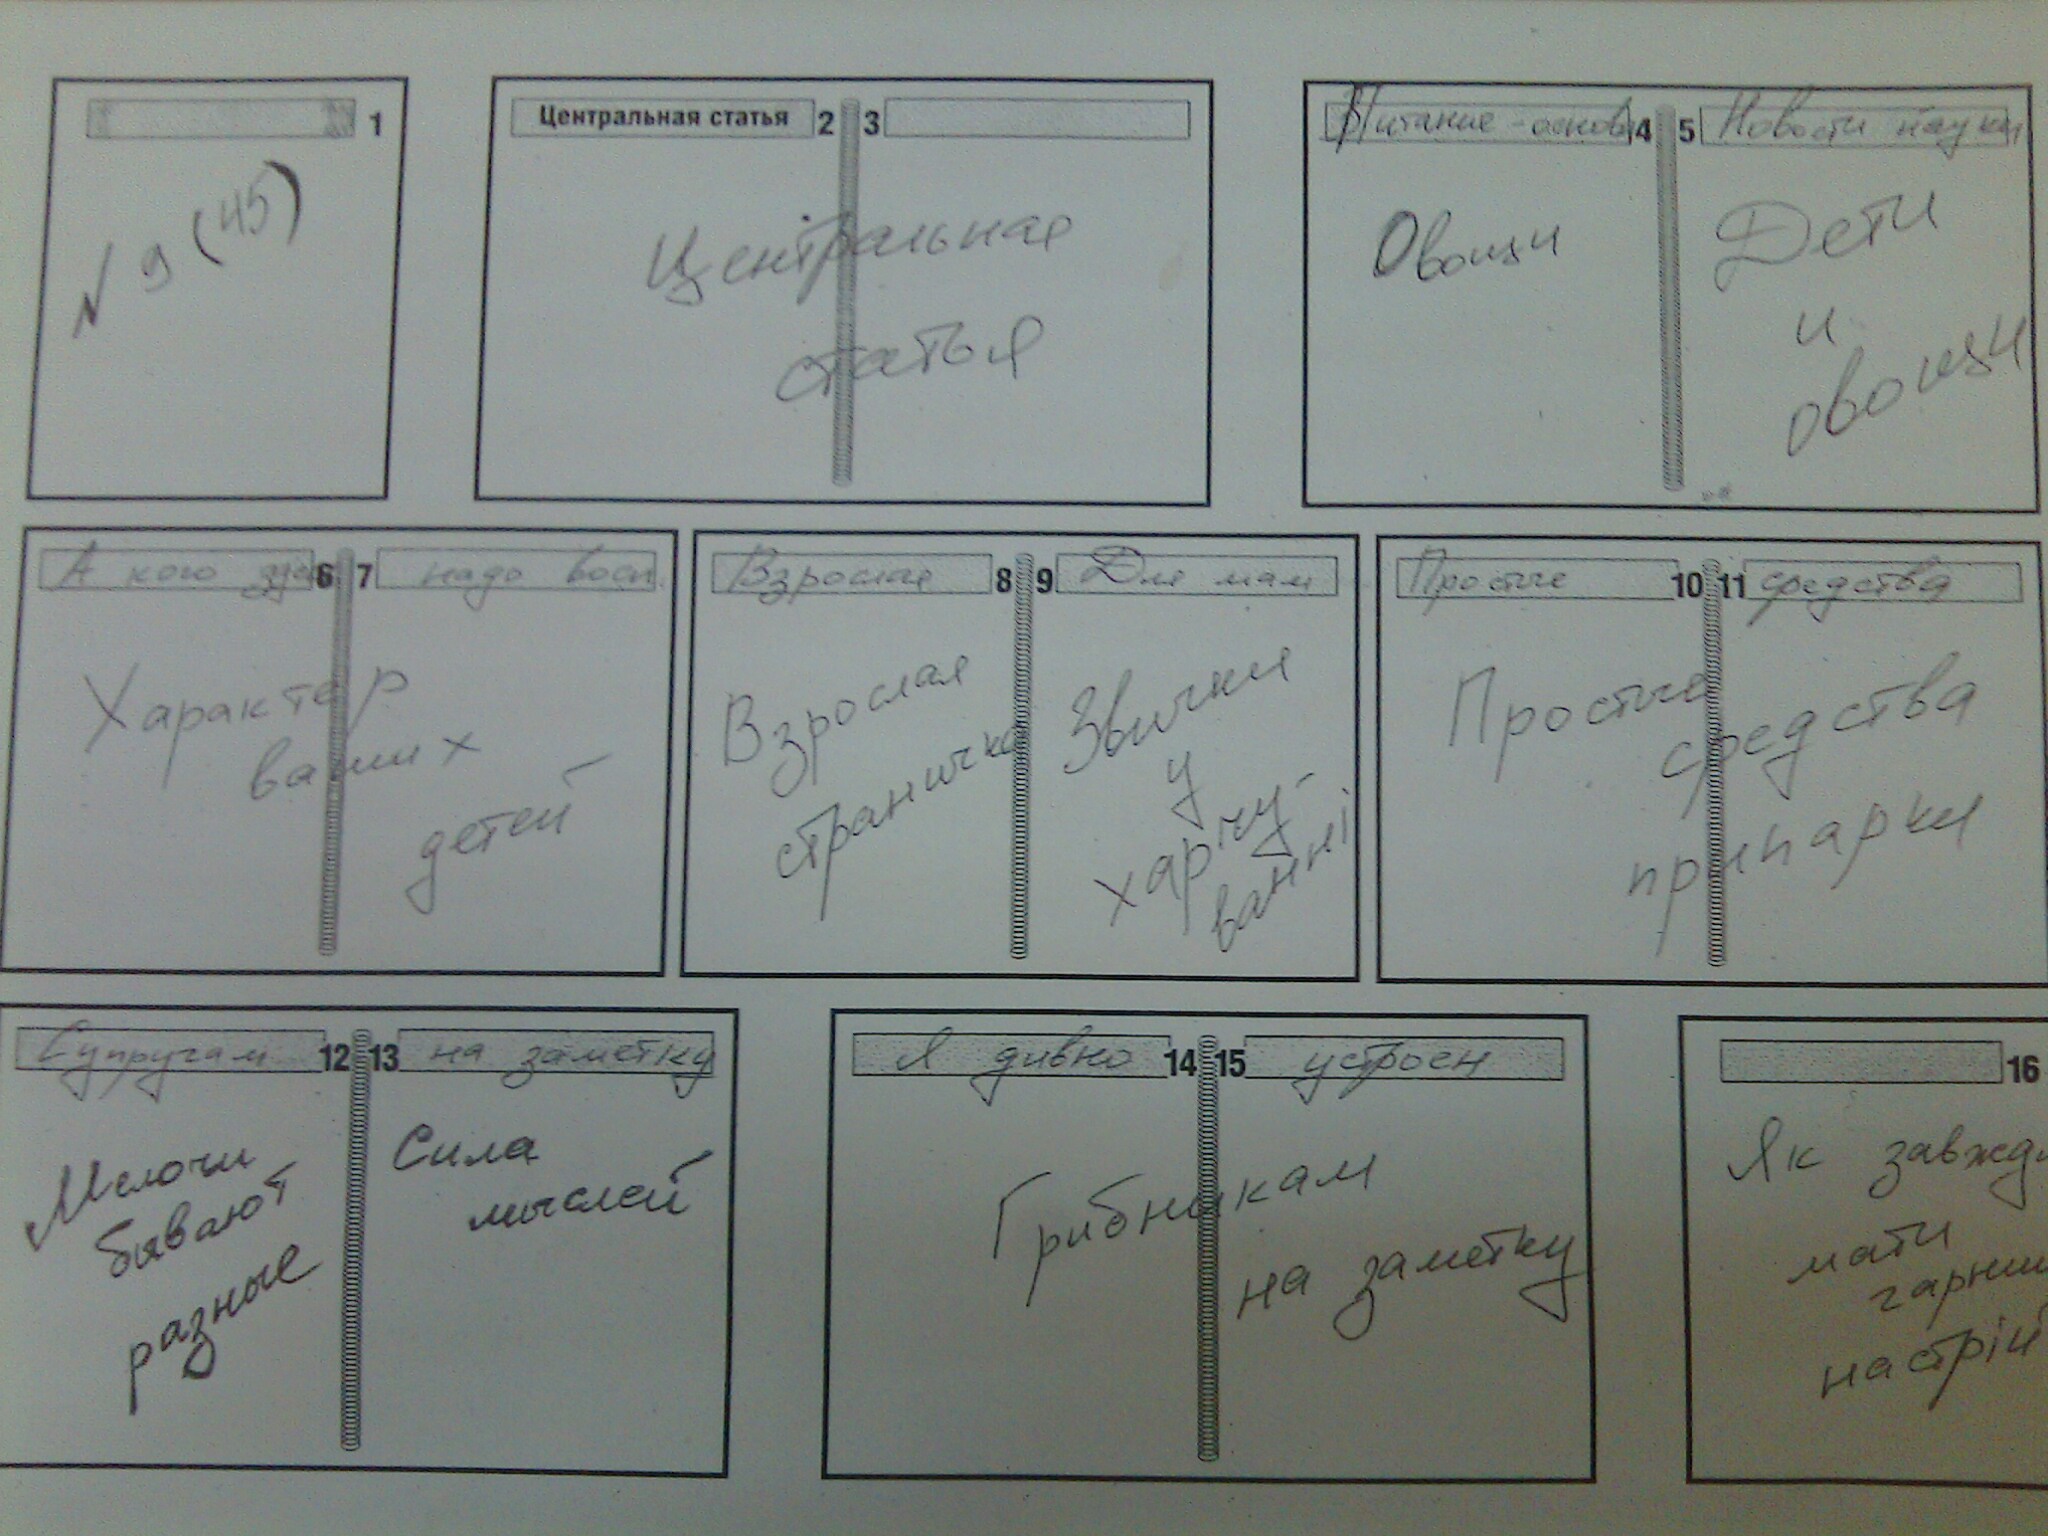 1
№ 9 (45)
Центральная статья 2 3
Центральная
статья
Питание - основа 4
Овощи
5 Новости науки
Дети
и
овощи
А кого 6 7 надо восп.
Характер
ваших
детей
Взрослая 8
Взрослая
страничка
9 Для мам
Звички
у
харчу-
ванні
Простые 10 11 средства
Простые
средства
припарки
Супругам 12 13 на заметку
Мелочи
бывают
разные
Сила
мыслей
Я дивно 14 15 устроен
Грибникам
на заметку
16
Як завжди
мати
гарний
настрій